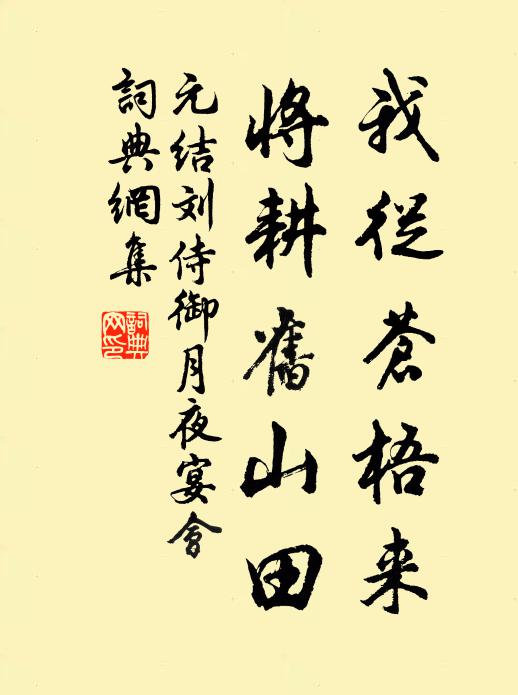 我從蒼梧来
将耕舊山田
元结刘侍御月夜宴會
詞典網集
詞典網印